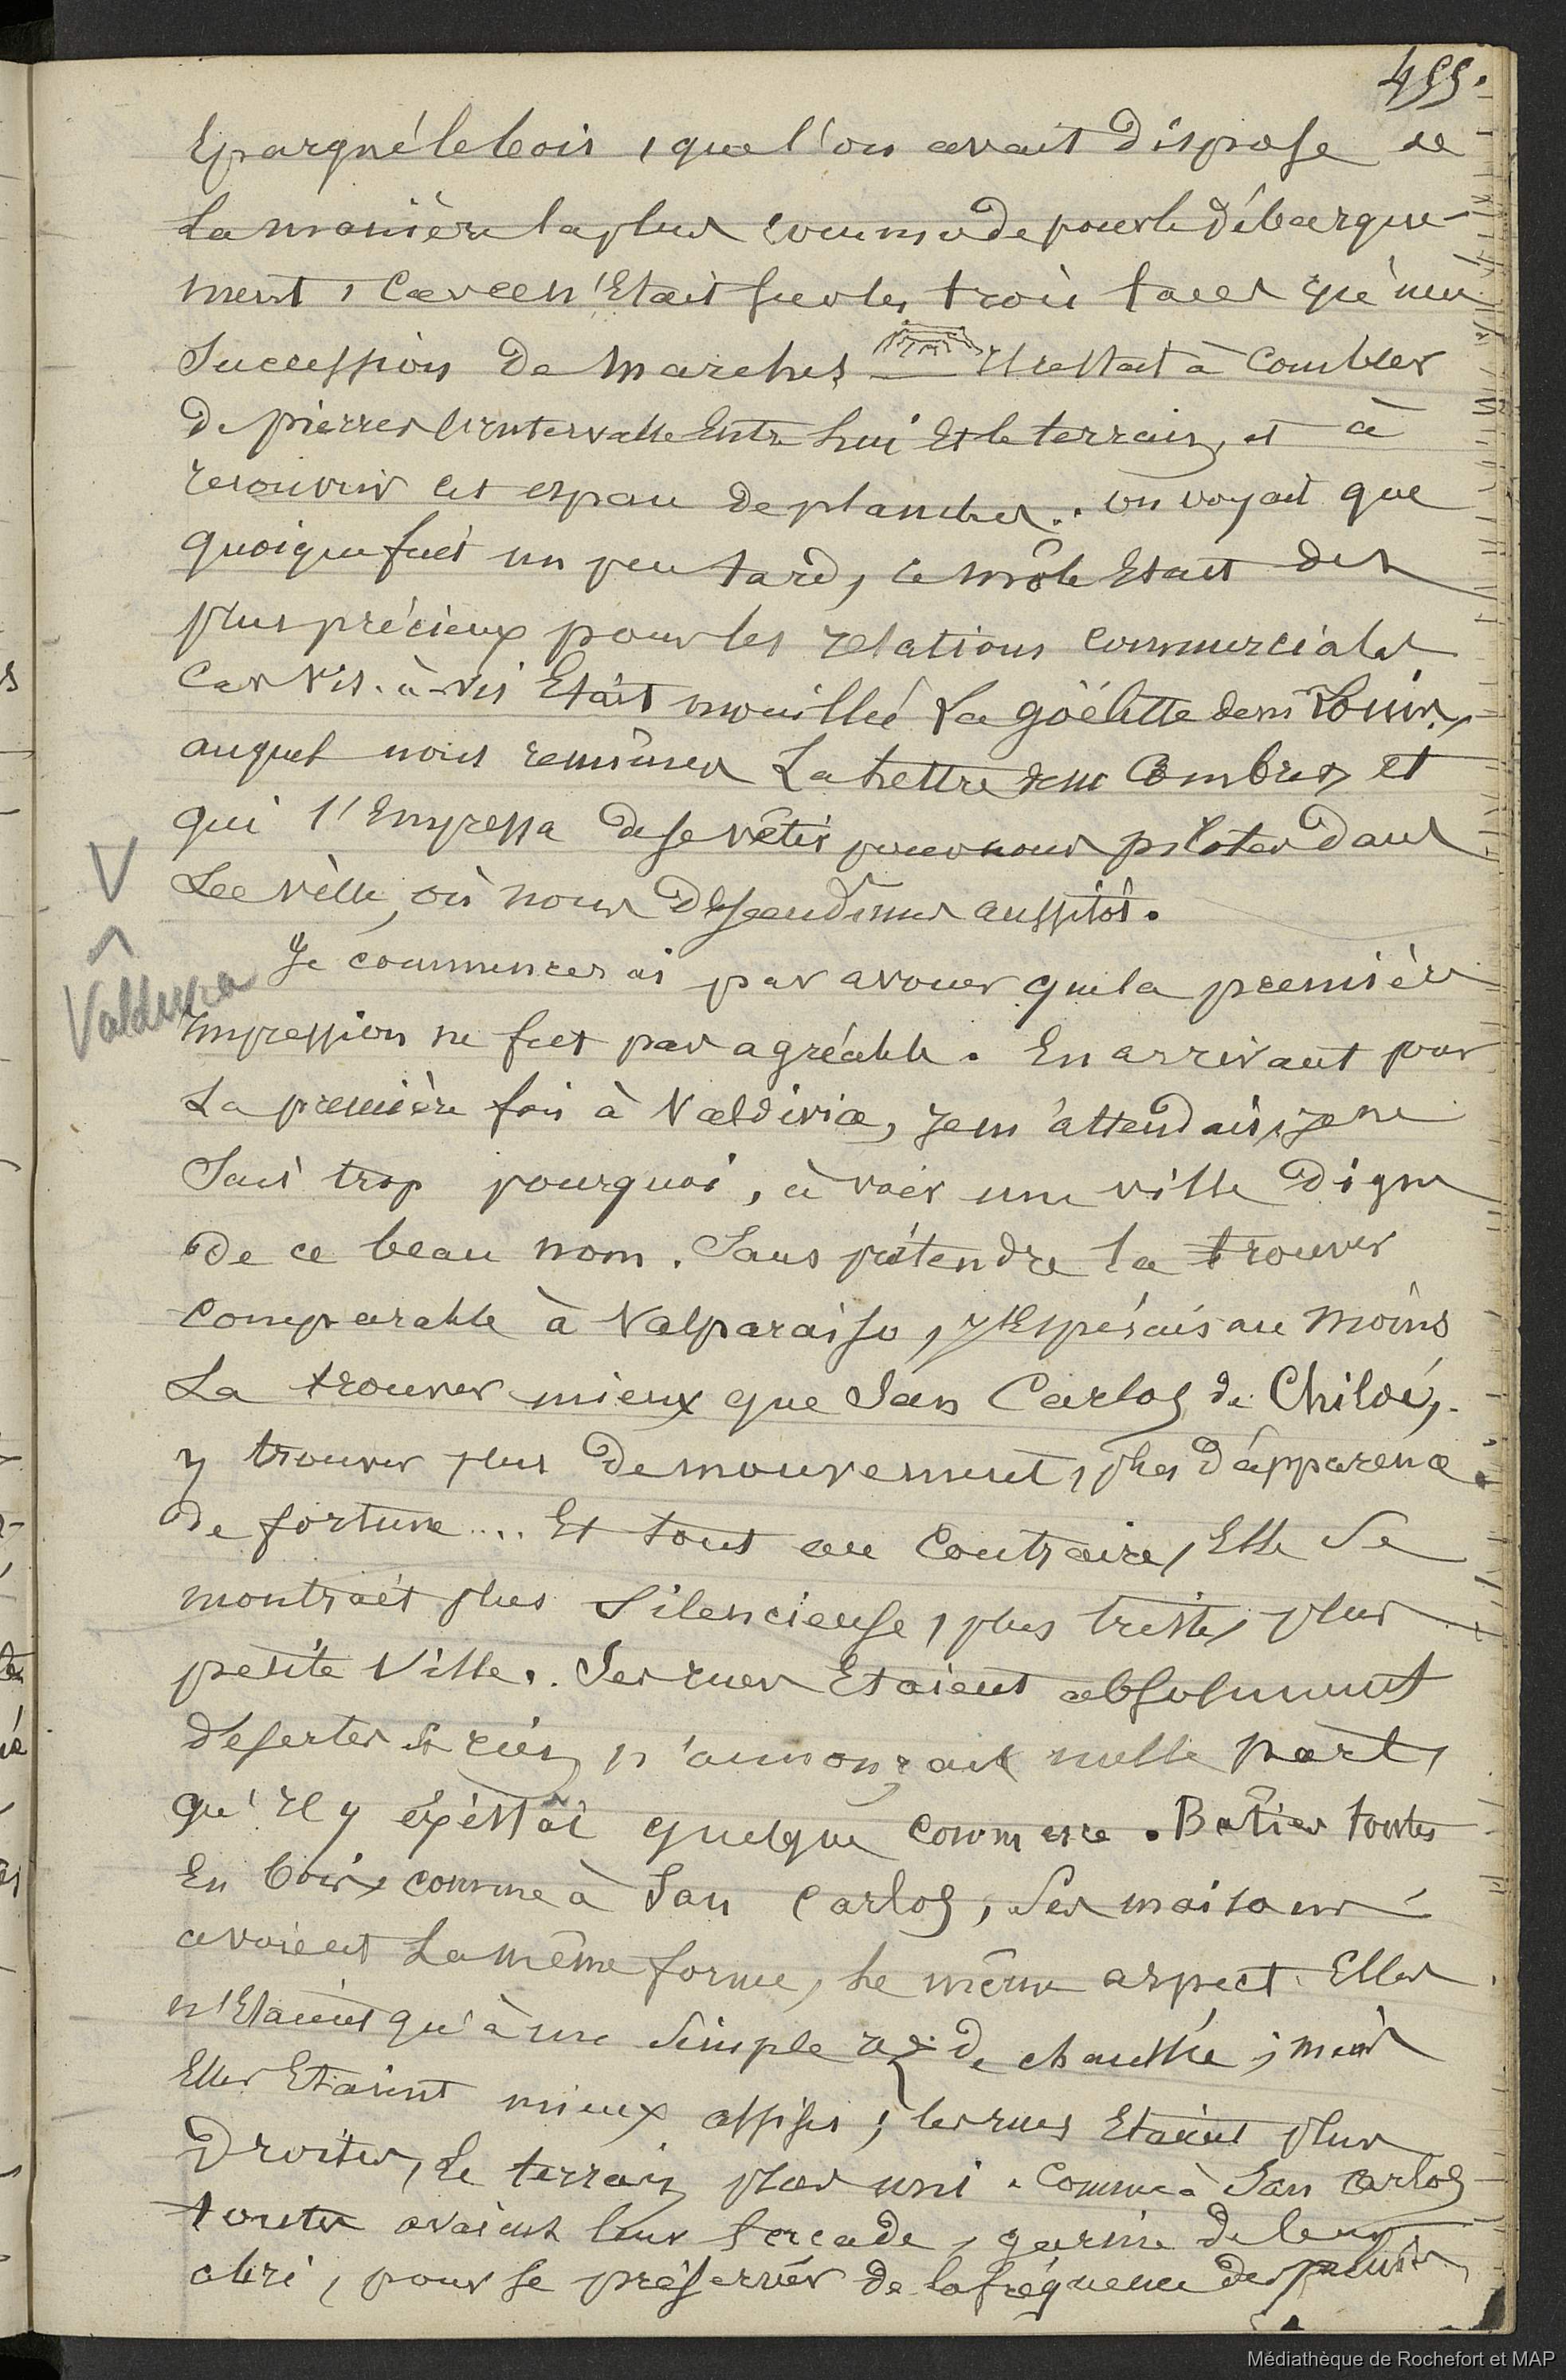 455.
Epargné le bois, que l'on avait disposé de
La manière la plus commode pour le débarque-
ment, Car ce n'Etait sur les trois faces qu'une
Succession de marches Il restait à Combler
De pierres l'intervalle Entre Lui Et le terrain, et à
recouvrir cet espace de planches.. on voyait que
quoique fuet un peu tard, ce môle Etait des
plus précieux pour les relations commerciales
Car vis-à-vis Etait mouillée La goëlette de m
auquel nous remîmes La Lettre de m Combres, et
qui s'Empressa de se vêtir pour nous piloter dans
La ville, où nous descendîmes aussitôt.
V
^
Valdivia
Je commencerai par avouer que la première
Impression ne fut pas agréable. En arrivant pour
La première fois à Valdivia, je m'attendais, je ne
Sais trop pourquoi, à voir une ville digne
De ce beau nom. Sans prétendre la trouver
Comparable à Valparaiso, j'Espérais au moins
La trouver mieux que San Carlos de Chiloé,
y trouver plus de mouvement, plus d'apparence
de fortune.... Et tout au Contraire, Elle Se
montrait plus Silencieuse, plus triste, plus
petite Ville.. Ses rues Etaient absolument
désertes & rien n'annonçait nulle part,
qu'Il y existât quelque commerce. Bâties toutes
En bois, comme à San Carlos, Ses maisons
avaient La même forme, Le même aspect. Elles
n'Etaient qu'à un Simple rez de chaussée ; mais
Elles Etaient mieux assises ; les rues Etaient plus
Droites, Le terrain plus uni. Comme à San Carlos
toutes avaient leur Arcade, garnie de leur
abri, pour se préserver de la fréquence des pluies
Médiathèque de Rochefort et MAP